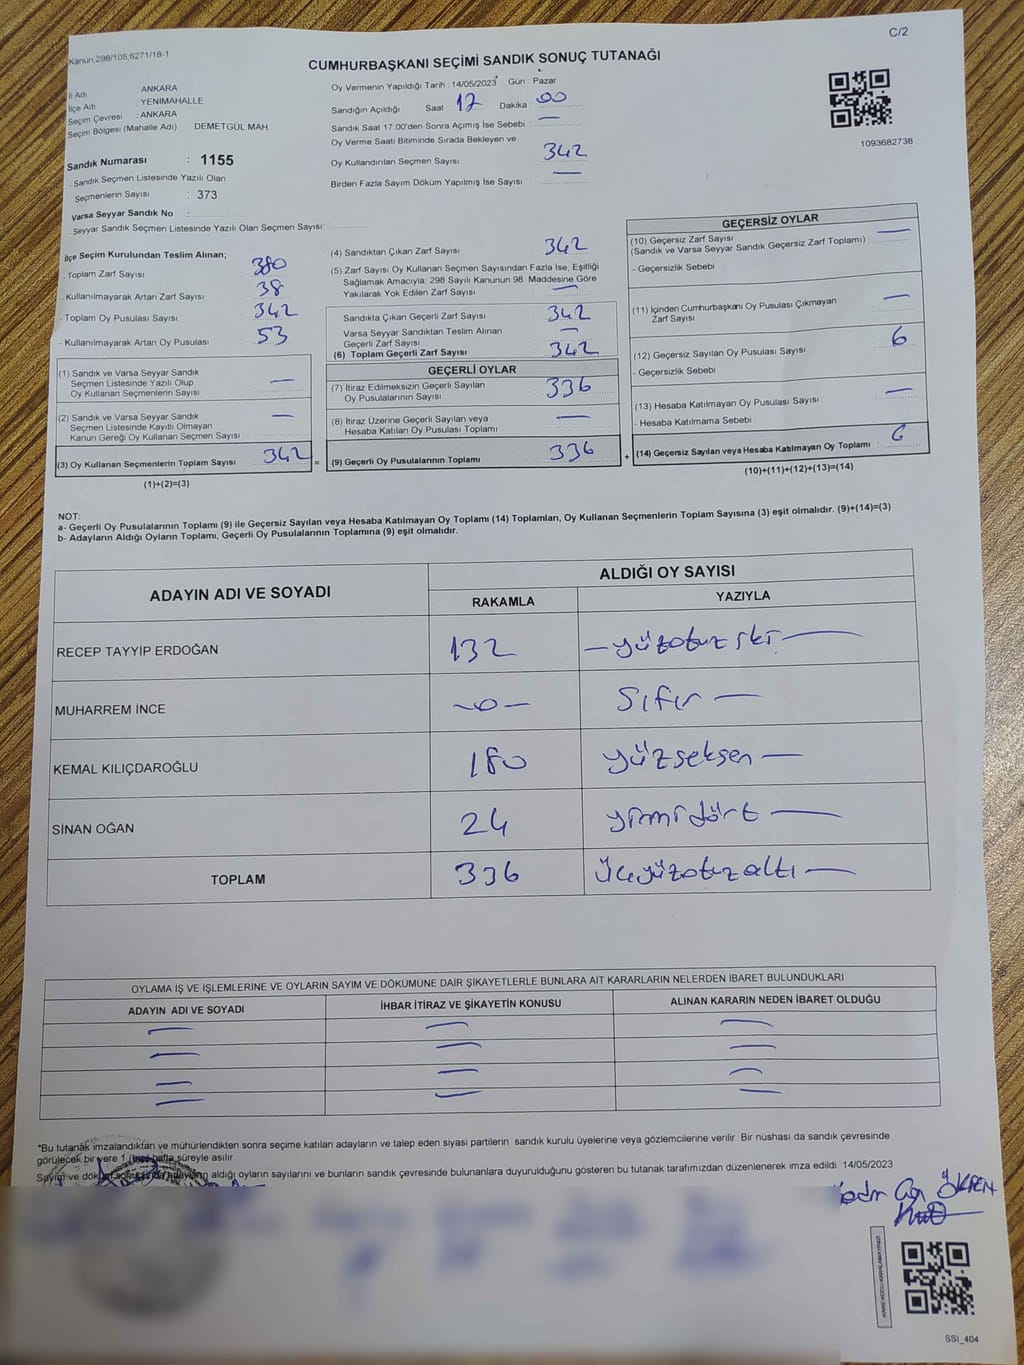 C/2
Kanun,298/105;6271/18-1
CUMHURBAŞKANI SEÇİMİ SANDIK SONUÇ TUTANAĞI
İl Adı ANKARA
İlçe Adı YENİMAHALLE
Seçim Çevresi : ANKARA
Seçim Bölgesi (Mahalle Adı) DEMETGÜL MAH.
Sandık Numarası : 1155
- Sandık Seçmen Listesinde Yazılı Olan
Seçmenlerin Sayısı : 373
Varsa Seyyar Sandık No :
- Seyyar Sandık Seçmen Listesinde Yazılı Olan Seçmen Sayısı:
Oy Vermenin Yapıldığı Tarih : 14/05/2023 Gün : Pazar
Sandığın Açıldığı Saat 17 Dakika : 00
Sandık Saat 17:00'den Sonra Açımış İse Sebebi : —
Oy Verme Saati Bitiminde Sırada Bekleyen ve
Oy Kullandırılan Seçmen Sayısı : 342
Birden Fazla Sayım Döküm Yapılmış İse Sayısı : —
1093682738
İlçe Seçim Kurulundan Teslim Alınan;
- Toplam Zarf Sayısı 380
- Kullanılmayarak Artan Zarf Sayısı 38
- Toplam Oy Pusulası Sayısı 342
- Kullanılmayarak Artan Oy Pusulası 53
(1) Sandık ve Varsa Seyyar Sandık
Seçmen Listesinde Yazılı Olup
Oy Kullanan Seçmenlerin Sayısı —
(2) Sandık ve Varsa Seyyar Sandık
Seçmen Listesinde Kayıtlı Olmayan
Kanun Gereği Oy Kullanan Seçmen Sayısı —
(3) Oy Kullanan Seçmenlerin Toplam Sayısı 342 =
(1)+(2)=(3)
(4) Sandıktan Çıkan Zarf Sayısı : 342
(5) Zarf Sayısı Oy Kullanan Seçmen Sayısından Fazla İse, Eşitliği
Sağlamak Amacıyla, 298 Sayılı Kanunun 98. Maddesine Göre
Yakılarak Yok Edilen Zarf Sayısı : —
Sandıkta Çıkan Geçerli Zarf Sayısı : 342
Varsa Seyyar Sandıktan Teslim Alınan
Geçerli Zarf Sayısı : —
(6) Toplam Geçerli Zarf Sayısı : 342
GEÇERLİ OYLAR
(7) İtiraz Edilmeksizin Geçerli Sayılan
Oy Pusulalarının Sayısı : 336
(8) İtiraz Üzerine Geçerli Sayılan veya
Hesaba Katılan Oy Pusulası Toplamı : —
(9) Geçerli Oy Pusulalarının Toplamı : 336 +
GEÇERSİZ OYLAR
(10) Geçersiz Zarf Sayısı
(Sandık ve Varsa Seyyar Sandık Geçersiz Zarf Toplamı) : —
- Geçersizlik Sebebi :
(11) İçinden Cumhurbaşkanı Oy Pusulası Çıkmayan
Zarf Sayısı : —
(12) Geçersiz Sayılan Oy Pusulası Sayısı : 6
- Geçersizlik Sebebi
(13) Hesaba Katılmayan Oy Pusulası Sayısı : —
- Hesaba Katılmama Sebebi :
(14) Geçersiz Sayılan veya Hesaba Katılmayan Oy Toplamı : 6
(10)+(11)+(12)+(13)=(14)
NOT:
a- Geçerli Oy Pusulalarının Toplamı (9) ile Geçersiz Sayılan veya Hesaba Katılmayan Oy Toplamı (14) Toplamları, Oy Kullanan Seçmenlerin Toplam Sayısına (3) eşit olmalıdır. (9)+(14)=(3)
b- Adayların Aldığı Oyların Toplamı, Geçerli Oy Pusulalarının Toplamına (9) eşit olmalıdır.
ADAYIN ADI VE SOYADI ALDIĞI OY SAYISI
RAKAMLA YAZIYLA
RECEP TAYYİP ERDOĞAN 132 — yüzotuz iki —
MUHARREM İNCE —0— Sıfır —
KEMAL KILIÇDAROĞLU 180 yüzseksen —
SİNAN OĞAN 24 yirmidört —
TOPLAM 336 Üçyüzotuzaltı —
OYLAMA İŞ VE İŞLEMLERİNE VE OYLARIN SAYIM VE DÖKÜMÜNE DAİR ŞİKAYETLERLE BUNLARA AİT KARARLARIN NELERDEN İBARET BULUNDUKLARI
ADAYIN ADI VE SOYADI İHBAR İTİRAZ VE ŞİKAYETİN KONUSU ALINAN KARARIN NEDEN İBARET OLDUĞU
— — —
— — —
— — —
— — —
*Bu tutanak imzalandıktan ve mühürlendikten sonra seçime katılan adayların ve talep eden siyasi partilerin sandık kurulu üyelerine veya gözlemcilerine verilir. Bir nüshası da sandık çevresinde
görülecek bir yere 1 hafta süreyle asılır.
Sayım ve döküm adayların aldığı oyların sayılarını ve bunların sandık çevresinde bulunanlara duyurulduğunu gösteren bu tutanak tarafımızdan düzenlenerek imza edildi. 14/05/2023
SSI_404